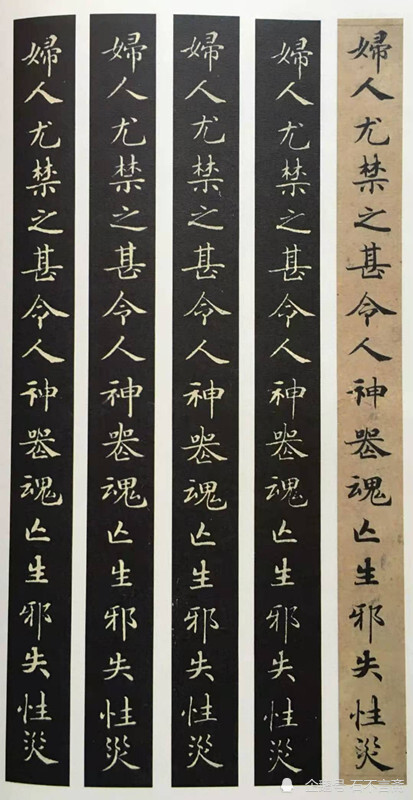 婦人尤禁之甚令人神喪魂亡生邪失性災
婦人尤禁之甚令人神喪魂亡生邪失性災
婦人尤禁之甚令人神喪魂亡生邪失性災
婦人尤禁之甚令人神喪魂亡生邪失性災
婦人尤禁之甚令人神喪魂亡生邪失性災
企鹅号 石不言斋